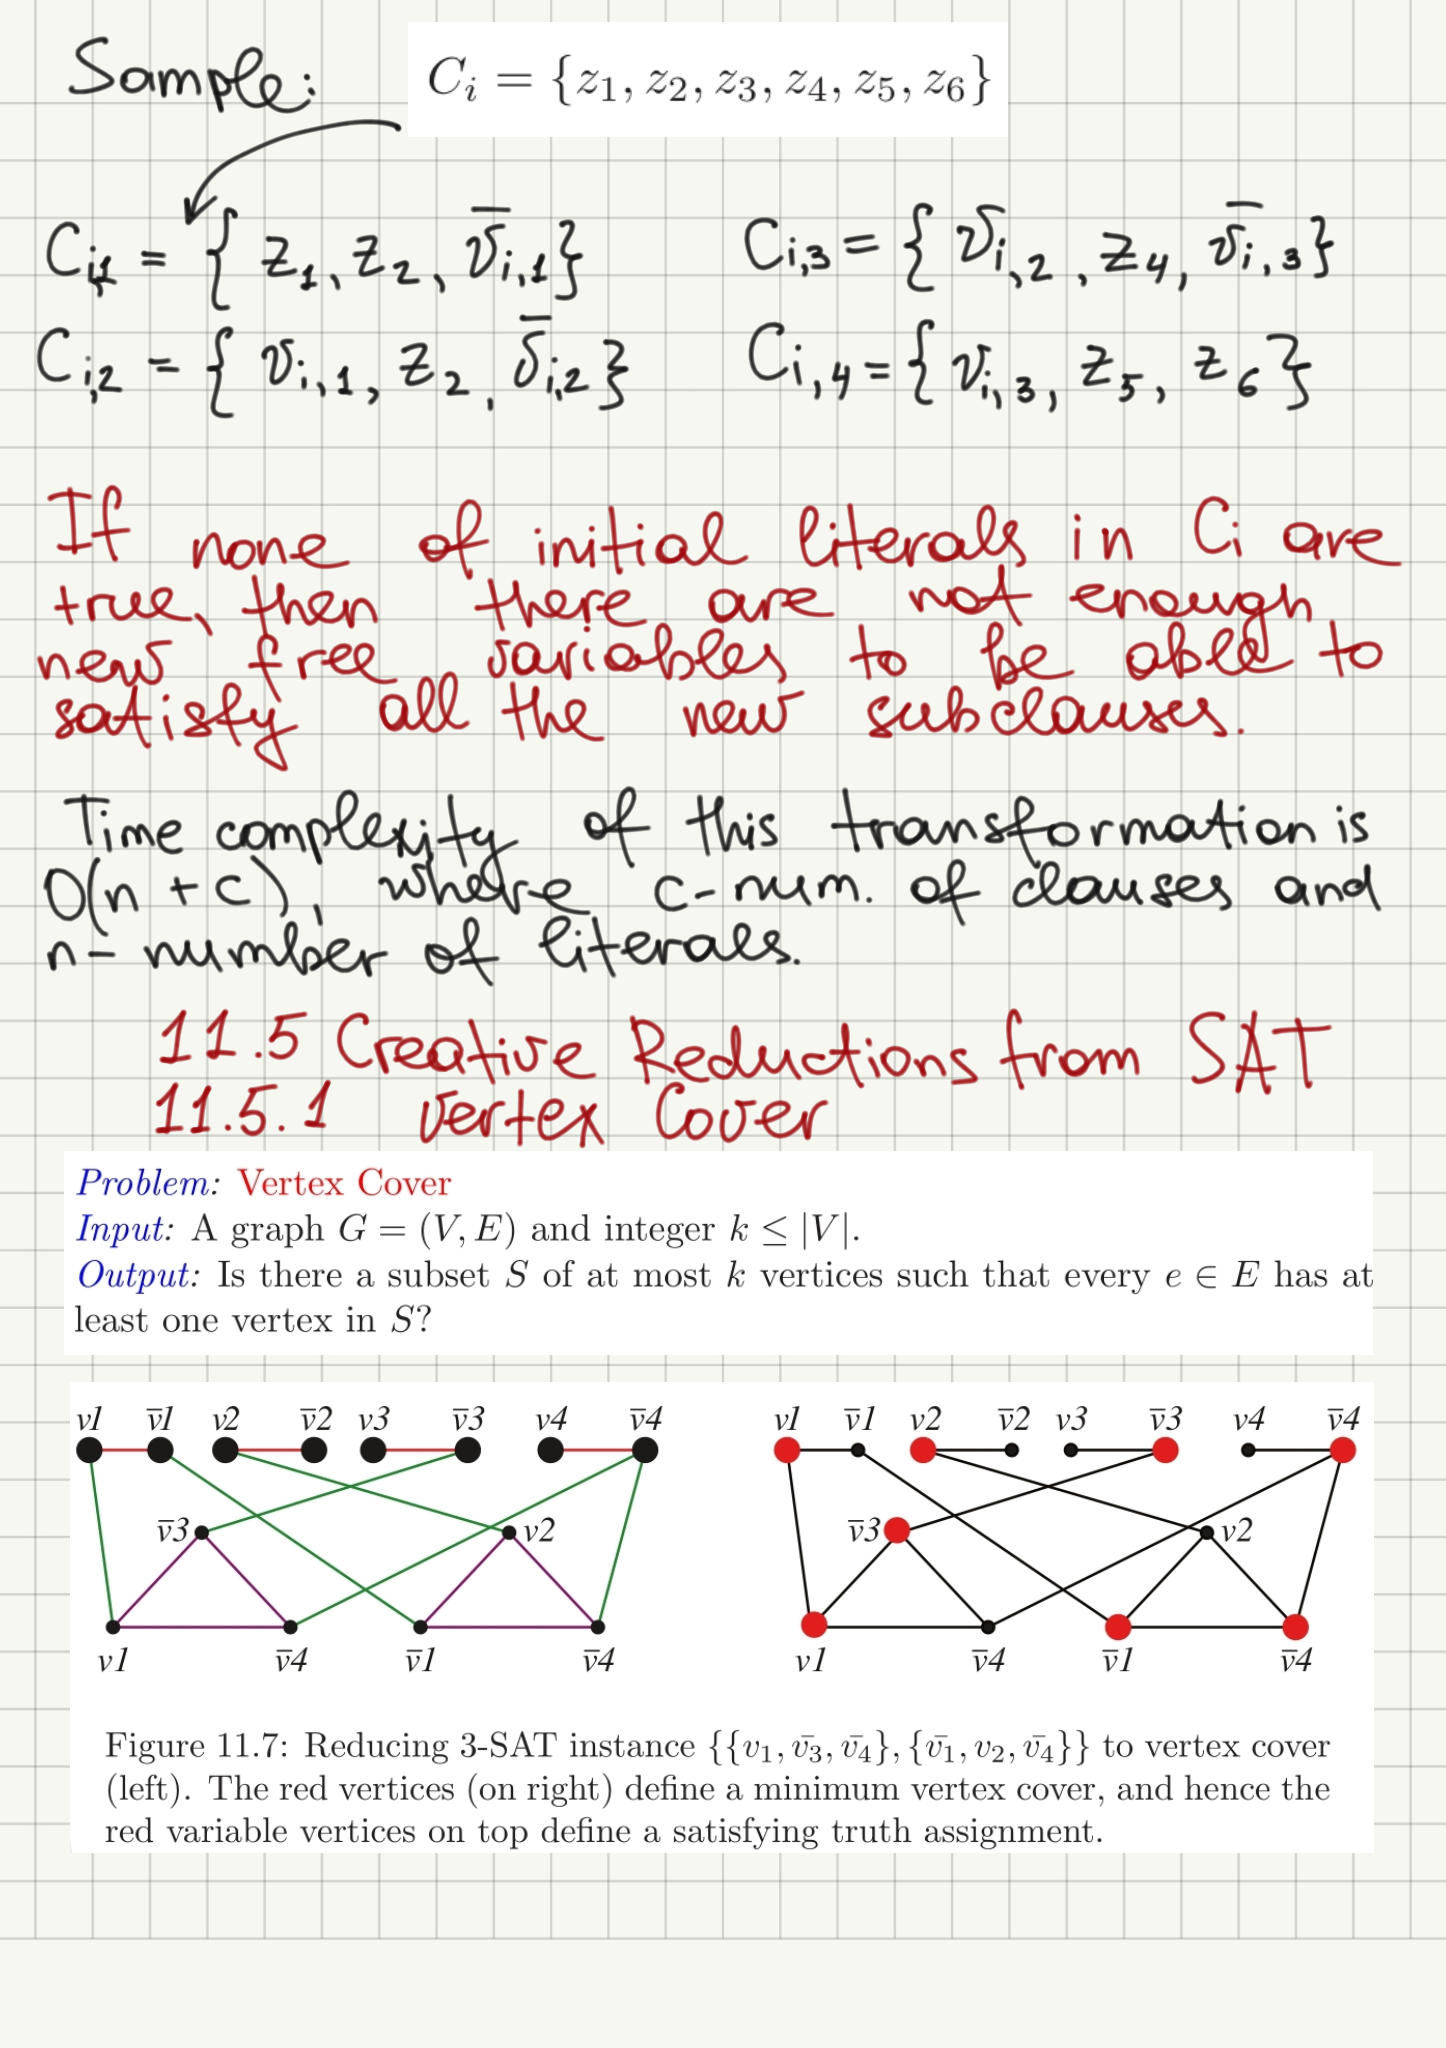 Sample:
C_i = {z_1, z_2, z_3, z_4, z_5, z_6}
C_{i,1} = { z_1, z_2, v̄_{i,1}}
C_{i,3} = { v_{i,2}, z_4, v̄_{i,3}}
C_{i,2} = { v_{i,1}, z_2, v̄_{i,2}}
C_{i,4} = { v_{i,3}, z_5, z_6 }
If none of initial literals in C_i are
true, then there are not enough
new free variables to be able to
satisfy all the new subclauses.
Time complexity of this transformation is
O(n + c), where c - num. of clauses and
n - number of literals.
11.5 Creative Reductions from SAT
11.5.1 Vertex Cover
Problem: Vertex Cover
Input: A graph G = (V, E) and integer k ≤ |V|.
Output: Is there a subset S of at most k vertices such that every e ∈ E has at
least one vertex in S?
v1 v̄1 v2 v̄2 v3 v̄3 v4 v̄4
v̄3 v2
v1 v̄4 v̄1 v̄4
v1 v̄1 v2 v̄2 v3 v̄3 v4 v̄4
v̄3 v2
v1 v̄4 v̄1 v̄4
Figure 11.7: Reducing 3-SAT instance {{v_1, v̄_3, v̄_4}, {v̄_1, v_2, v̄_4}} to vertex cover
(left). The red vertices (on right) define a minimum vertex cover, and hence the
red variable vertices on top define a satisfying truth assignment.